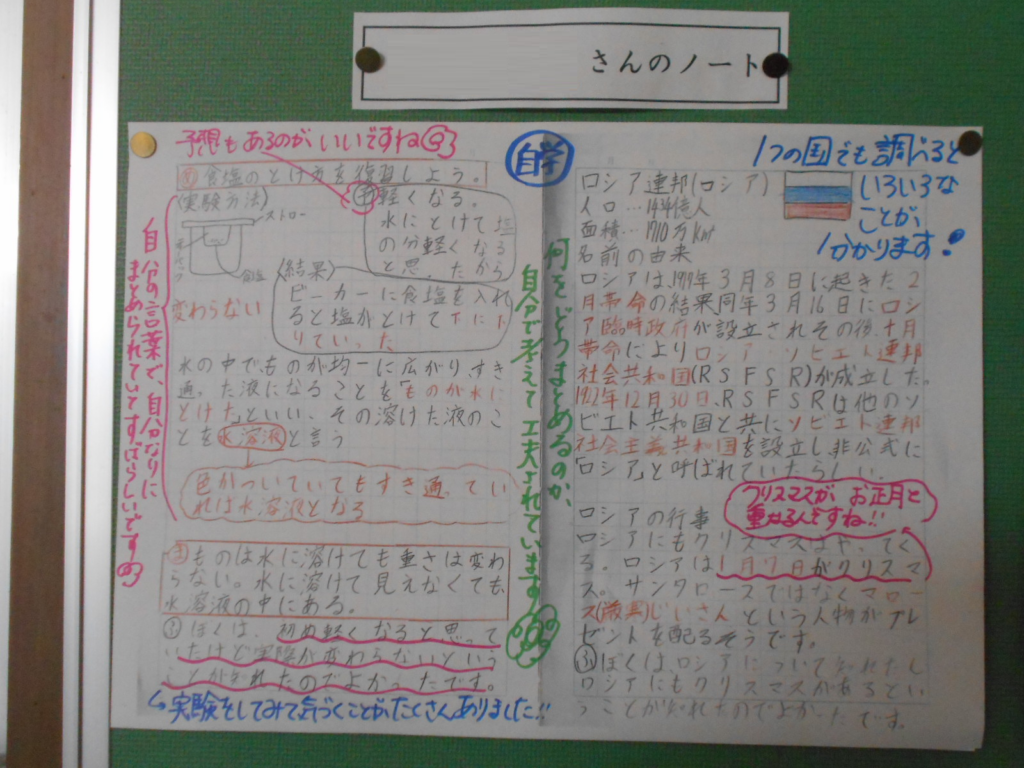 さんのノート
予想もあるのがいいですね
自学
1つの国でも調べると
いろいろな
ことが
分かります!
め食塩のとけ方を復習しよう。
(実験方法)
ストロー
食塩
予軽くなる。
水にとけて塩
の分軽くなる
と思ったから
(結果)
変わらない
ビーカーに食塩を入れ
ると塩がとけて下に下
りていった
水の中でものが均一に広がり、すき
通った液になることを「ものが水に
とけた」といい、その溶けた液のこ
とを水溶液と言う
色がついていてもすき通ってい
れば水溶液となる
まものは水に溶けても重さは変わ
らない。水に溶けて見えなくても、
水溶液の中にある。
ふぼくは、初め軽くなると思って
いたけど実際が変わらないという
ことが知れたのでよかったです。
実験をしてみて気づくことがたくさんありました!!
自分の言葉で、自分なりに
まとめられていてすばらしいです
何をどうまとめるのか、
自分で考えて工夫されています
ロシア連邦(ロシア)
人口…1.44億人
面積…1710万km²
名前の由来
ロシアは、1917年3月8日に起きた2
月革命の結果同年3月16日にロシ
ア臨時政府が設立されその後、十月
革命によりロシア・ソビエト連邦
社会共和国(RSFSR)が成立した。
1922年12月30日、RSFSRは他のソ
ビエト共和国と共にソビエト連邦
社会主義共和国を設立し、非公式に
「ロシア」と呼ばれていたらしい。
クリスマスが、お正月と
重なるんですね!!
ロシアの行事
ロシアにもクリスマスはやってく
る。ロシアは1月7日がクリスマ
ス。サンタロースではなくマロー
ス()じいさんという人物がプレ
ゼントを配るそうです。
ふぼくは、ロシアについて知れたし
ロシアにもクリスマスがあるとい
うことが知れたのでよかったです。